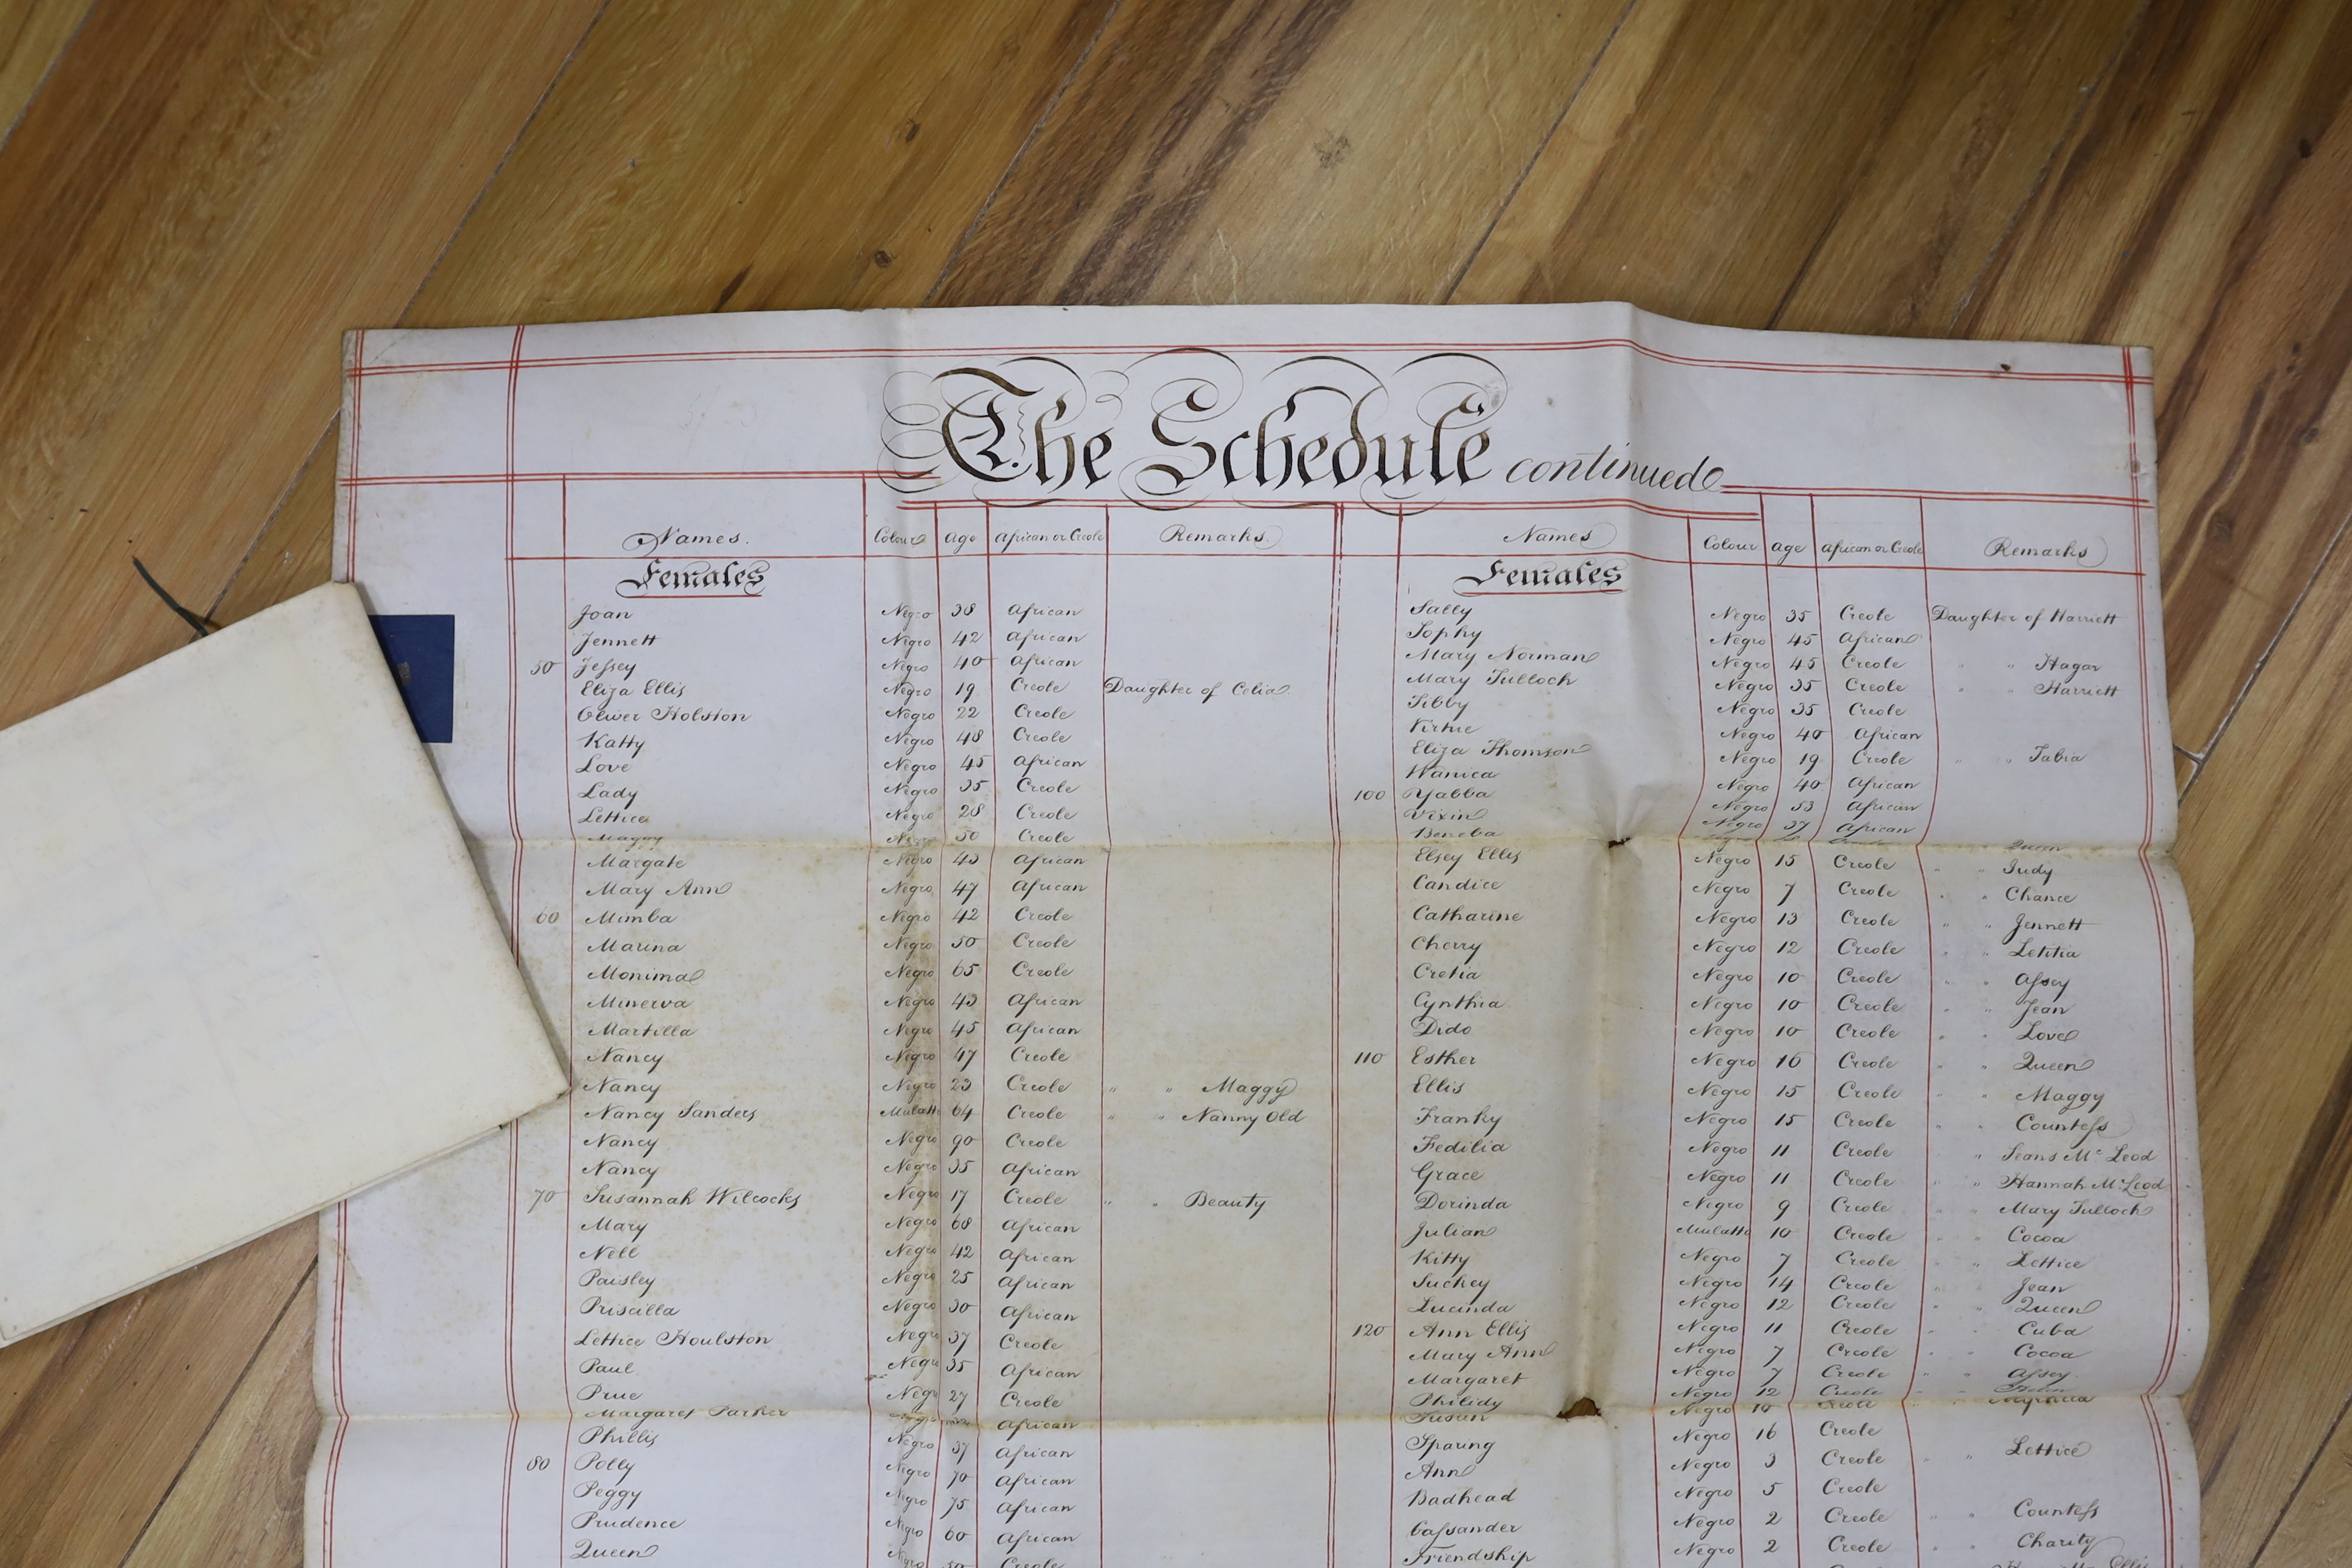 The Schedule continued
Names. Colour Age African or Creole Remarks.
Females
Joan Negro 38 African
Jennett Negro 42 African
50 Jessey Negro 40 African
Eliza Ellis Negro 19 Creole Daughter of Celia.
Oliver Holston Negro 22 Creole
Katty Negro 48 Creole
Love Negro 45 African
Lady Negro 35 Creole
Lettice Negro 28 Creole
Maggy Negro 50 Creole
Margate Negro 43 African
Mary Ann Negro 47 African
60 Mimba Negro 42 Creole
Marina Negro 50 Creole
Monimal Negro 65 Creole
Minerva Negro 43 African
Martilla Negro 45 African
Nancy Negro 47 Creole
Nancy Negro 23 Creole " " Maggy
Nancy Sanders Mulatto 64 Creole " " Nanny Old
Nancy Negro 90 Creole
Nancy Negro 35 African
70 Susannah Wilcocks Negro 17 Creole " " Beauty
Mary Negro 68 African
Nell Negro 42 African
Paisley Negro 25 African
Priscilla Negro 30 African
Lettice Houlston Negro 37 Creole
Paul Negro 35 African
Prue Negro 27 Creole
Margaret Parker African
Phillis Negro 37 African
80 Polly Negro 70 African
Peggy Negro 75 African
Prudence Negro 60 African
Queen Negro 50 Creole
Names Colour Age African or Creole Remarks
Females
Sally Negro 35 Creole Daughter of Harriett
Sophy Negro 45 African
Mary Norman Negro 45 Creole " " Hagar
Mary Tulloch Negro 35 Creole " " Harriett
Sibby Negro 35 Creole
Virtue Negro 40 African
Eliza Thomson Negro 19 Creole " " Tabia
Wanica Negro 40 African
100 Yabba Negro 53 African
Vixin Negro 37 African
Beneba Queen
Elsey Ellis Negro 15 Creole " " Judy
Candice Negro 7 Creole " " Chance
Catharine Negro 13 Creole " " Jennett
Cherry Negro 12 Creole " " Letitia
Cretia Negro 10 Creole " " Assey
Cynthia Negro 10 Creole " " Jean
Dido Negro 10 Creole " " Love
110 Esther Negro 16 Creole " " Queen
Ellis Negro 15 Creole " " Maggy
Franky Negro 15 Creole " " Countess
Fedilia Negro 11 Creole " Jeans McLeod
Grace Negro 11 Creole " " Hannah McLeod
Dorinda Negro 9 Creole " " Mary Tulloch
Julian Mulatto 10 Creole " " Cocoa
Kitty Negro 7 Creole " " Lettice
Suckey Negro 14 Creole " " Jean
Lucinda Negro 12 Creole " " Queen
120 Ann Ellis Negro 11 Creole " " Cuba
Mary Ann Negro 7 Creole " " Cocoa
Margaret Negro 7 Creole " " Assey
Philidy Negro 12 Creole
Susan Negro 10 Creole
Sparing Negro 16 Creole
Ann Negro 3 Creole " " Lettice
Badhead Negro 5 Creole
Cassander Negro 2 Creole " " Countess
Friendship Negro 2 Creole " " Charity